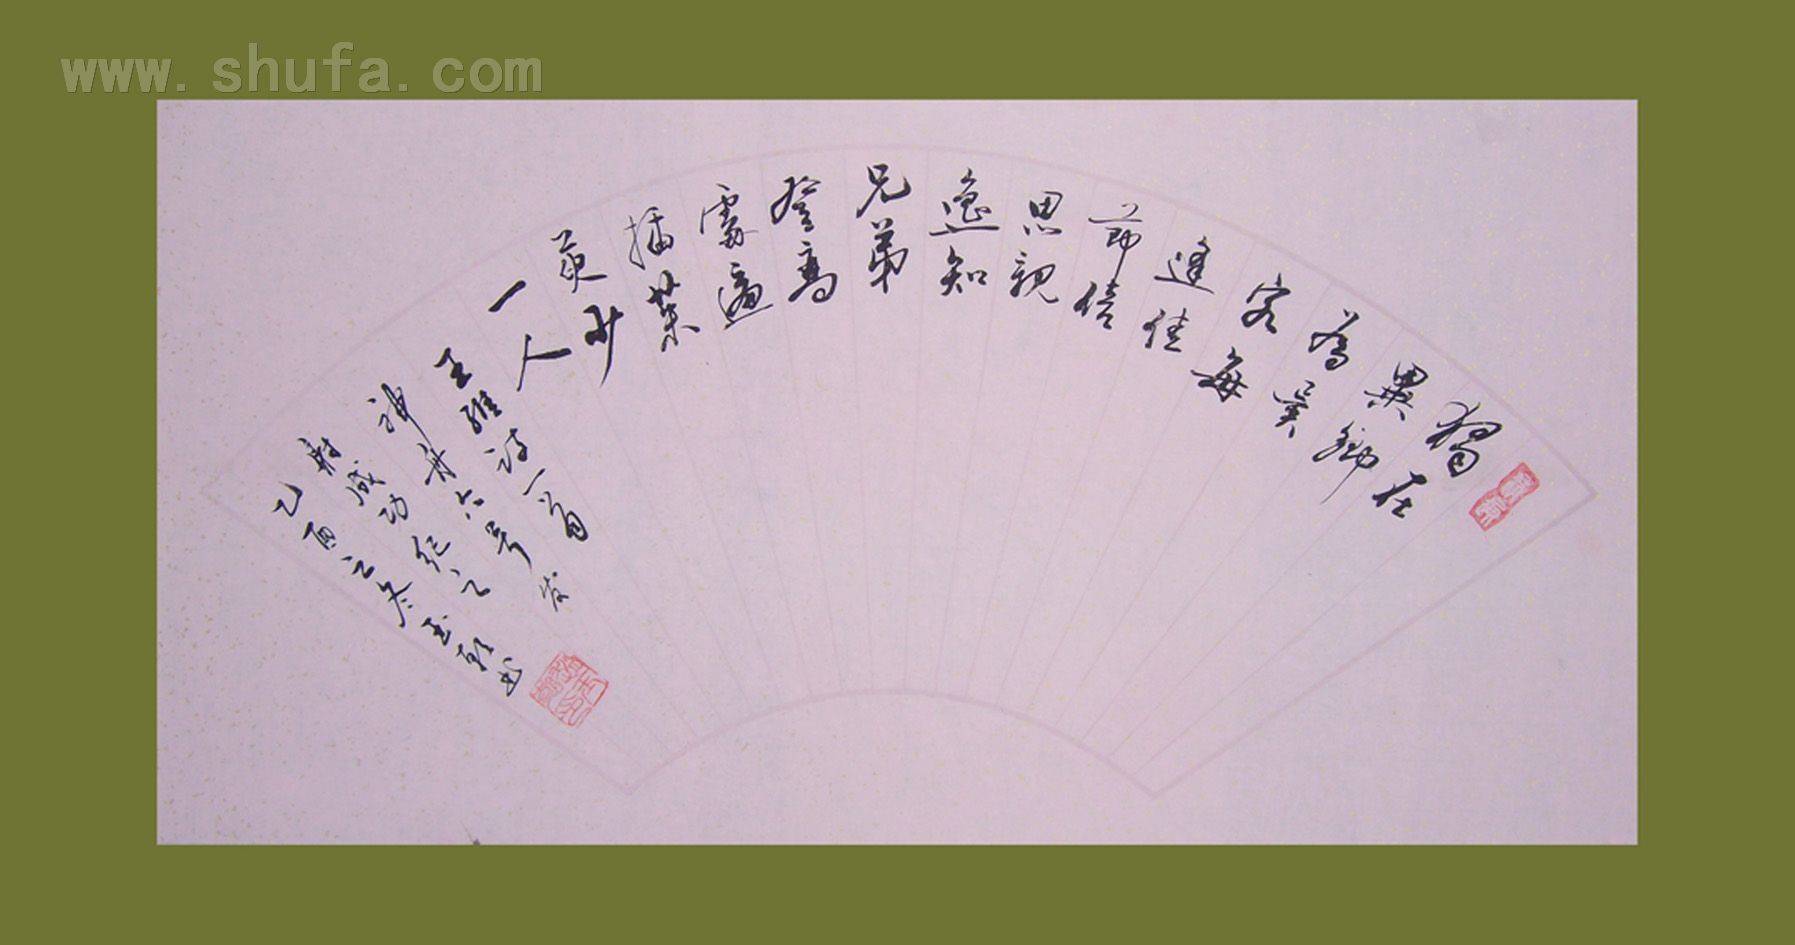 www.shufa.com
獨在
異鄉
為異
客每
逢佳
節倍
思親
遙知
兄弟
登高
處遍
插茱
萸少
一人
王維诗一首
神舟六号发
射成功纪之
乙酉之冬玉书